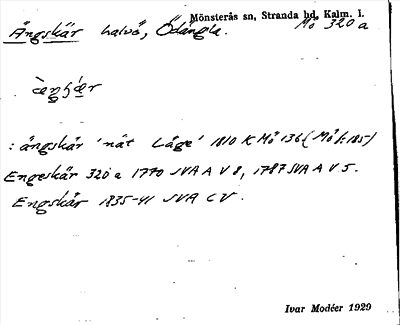 Mönsterås sn, Stranda hd, Kalm. l.
Ängskär halvö, Ödängla. Mö 320 a
: ängskär 'nät Läge' 1810 K Mö 136 (Mö f:185)
Engeskär 320 a 1770 SVA A V 8, 1787 SVA A V 5.
Engskär 1835-41 SVA C V.
Ivar Modéer 1929